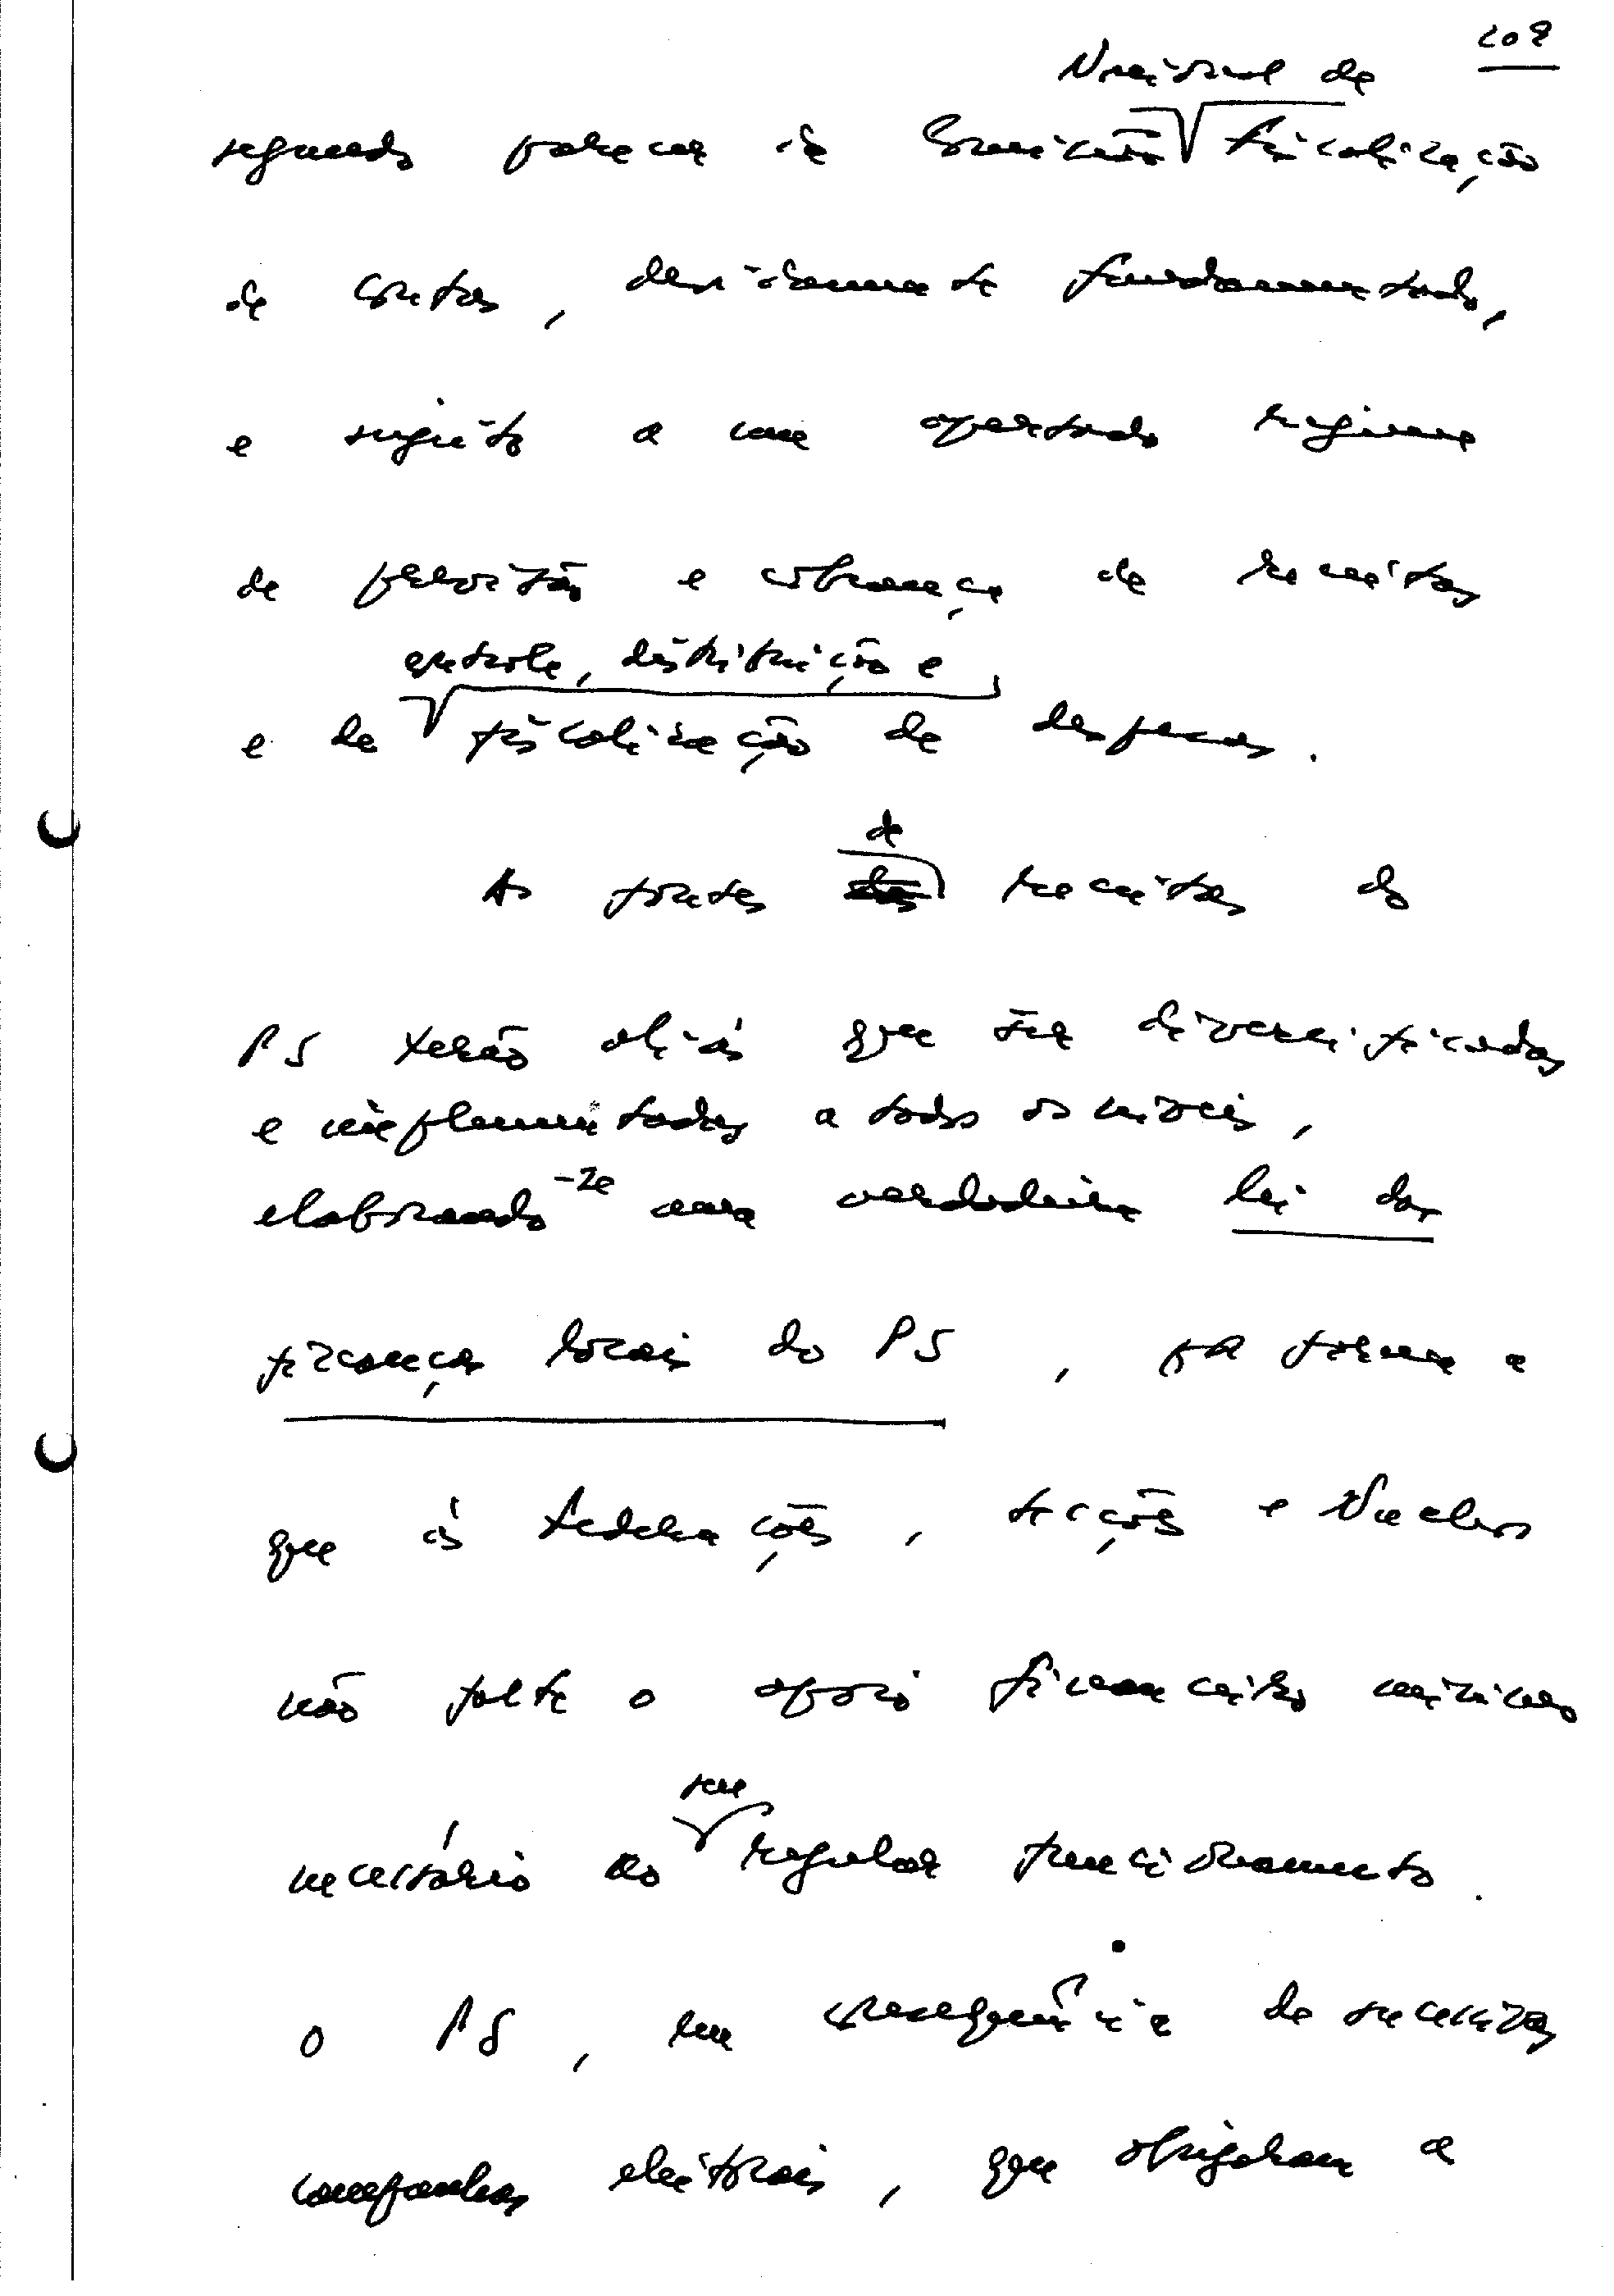 Nacional de
segundo parecer da Comissão fiscalização
de contas, devidamente fundamentado,
e sujeito a um apertado regime
de previsão e cobrança de receitas
controle, distribuição e
e de fiscalização de despesas.
de
As fontes das receitas do
PS terão aliás que ser diversificadas
e implementadas a todos os níveis,
elaborando-se uma verdadeira lei das
finanças locais do PS, por forma a
que às Federações, secções e Núcleos
não falte o apoio financeiro mínimo
seu
necessário ao regular funcionamento.
O PS, em consequência de sucessivas
campanhas eleitorais, que obrigaram a